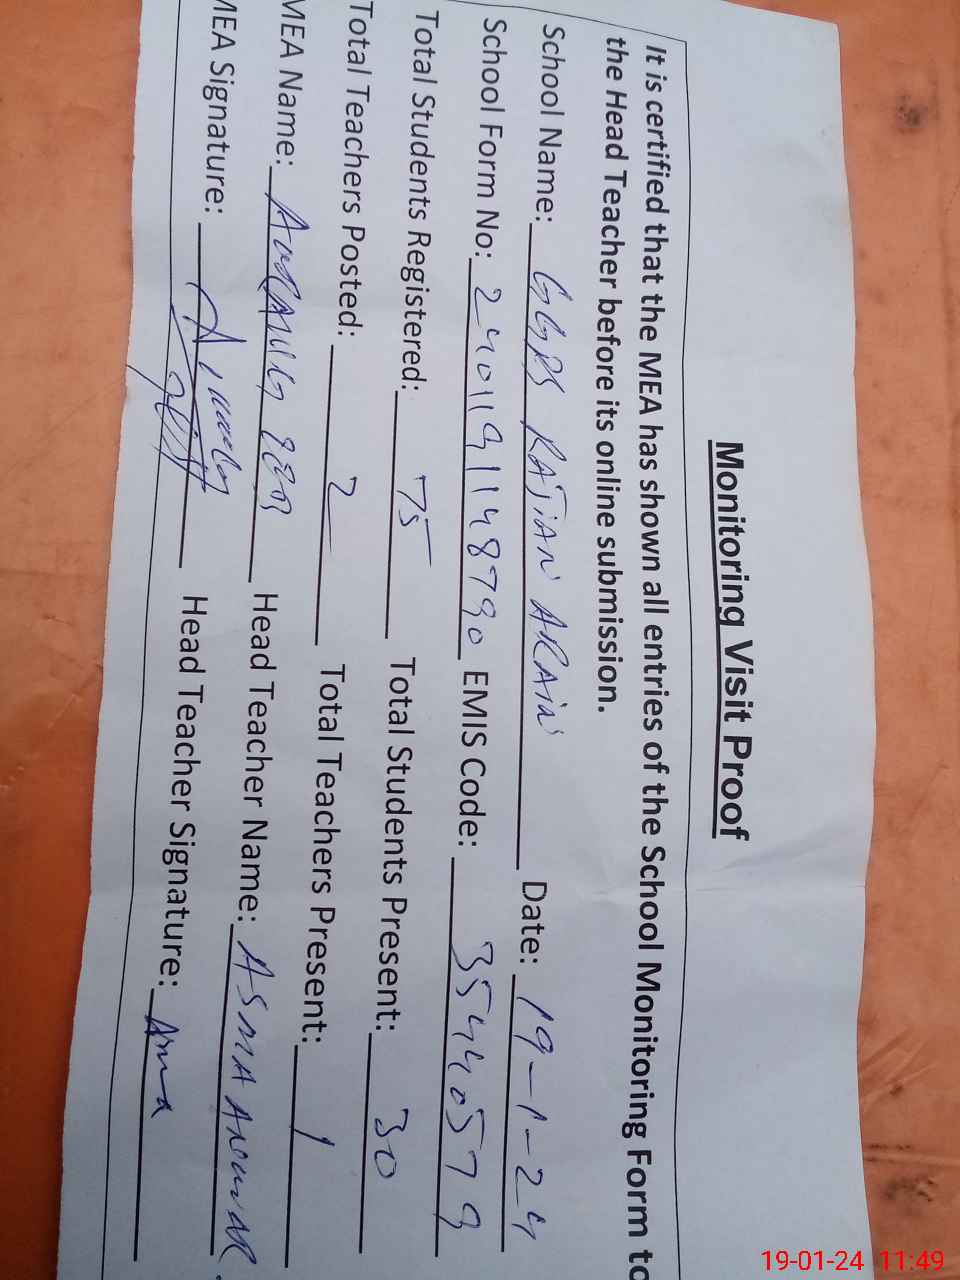 Monitoring Visit Proof
It is certified that the MEA has shown all entries of the School Monitoring Form to
the Head Teacher before its online submission.
School Name: GGPS RATIAN ARAIN Date: 19-1-24
School Form No: 2401191148790 EMIS Code: 35440579
Total Students Registered: 75 Total Students Present: 30
Total Teachers Posted: 2 Total Teachers Present: 1
MEA Name: Head Teacher Name: ASMA ANWAR
MEA Signature: Head Teacher Signature: Asma
19-01-24 11:49